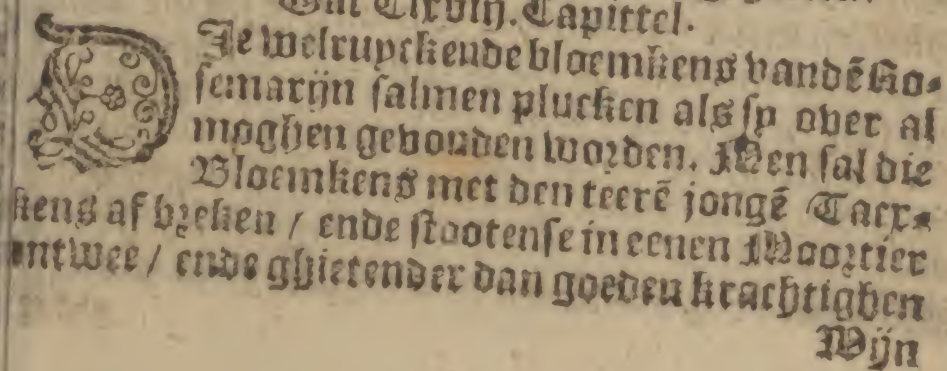 Dat Clxviij. Capittel.
DJe welruyckende bloemkens vandẽ Ro-
semarijn salmen plucken als sy over al
moghen gevonden worden. Men sal die
Bloemkens met den teerẽ jongẽ Tacx-
kens af breken / ende stootense in eenen Moortier
ontwee / ende ghietender dan goeden krachtighen
Wijn